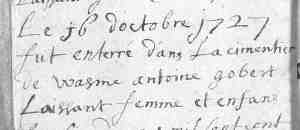 Le 16e doctobre 1727
fut enterré dans La cimentier
de wasme antoine gobert
Laissant femme et enfans